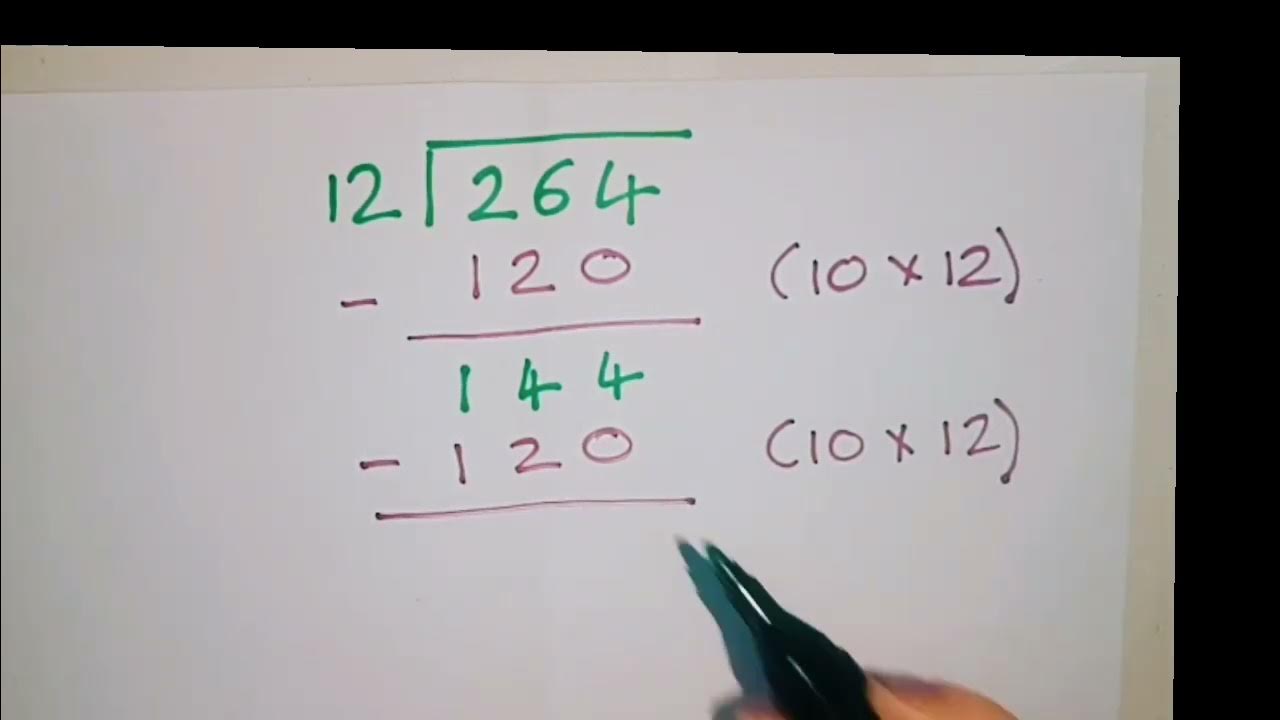 12 264
- 120 (10 × 12)
144
- 120 (10 × 12)